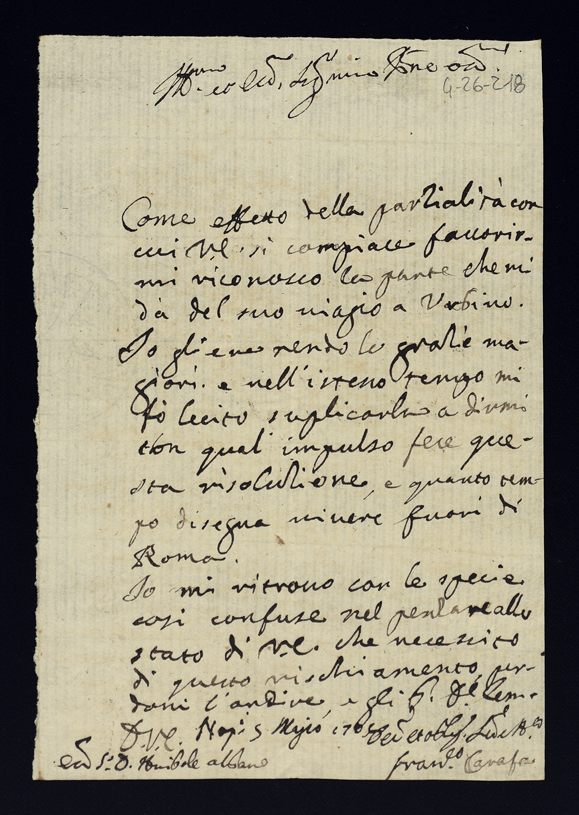 4-26-218
Come effetto della partialità con
cui V.E. si compiace favorir-
mi riconosco la parte che mi
dà del suo viagio a Urbino.
Io gliene rendo le gratie ma-
giori. e nell'istesso tempo mi
fo lecito suplicarla a dirmi
con qual impulso fece que-
sta risolutione, e quanto tem-
po disegna vivere fuori di
Roma.
Io mi ritrovo con le specie
cosi confuse nel pensare allo
stato di V.E. che necessito
di questo rischiamento, per-
doni l'ardire, e gli
D.V.E. Nap. 5
Fran.co Carafa
S.r D. Anibale Albano